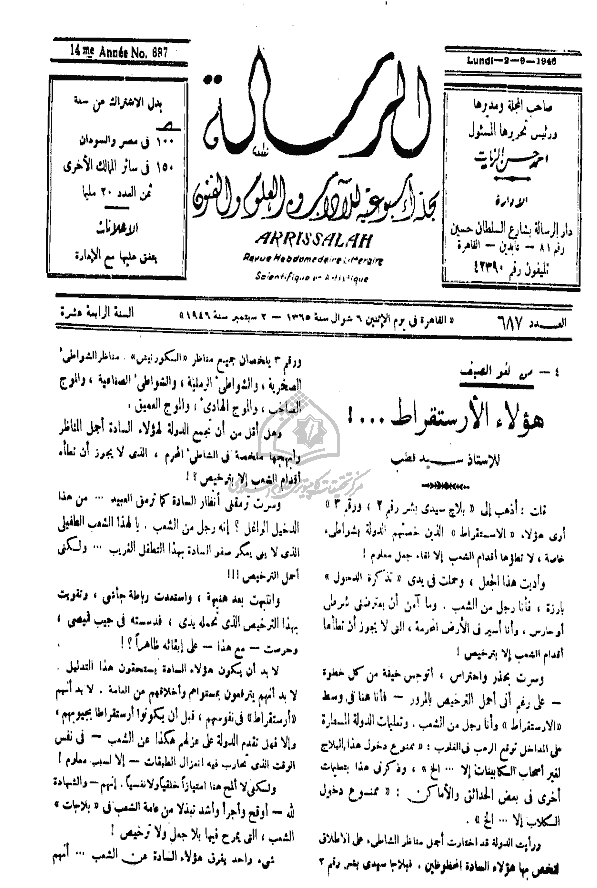 14me Année No. 687
Lundi-2-9-1946
صاحب المجلة ومديرها
ورئيس تحريرها المسئول
احمد حسن الزيات
الادارة
دار الرسالة بشارع السلطان حسين
رقم ٨١ — عابدين — القاهرة
تليفون رقم ٤٢٣٩٠
الرسالة
مجلة أسبوعية للآداب والعلوم والفنون
ARRISSALAH
Revue Hebdomadaire Littéraire
Scientifique et Artistique
بدل الاشتراك عن سنة
١٠٠ فى مصر والسودان
١٥٠ فى سائر الممالك الأخرى
ثمن العدد ٢٠ مليما
الاعلانات
يتفق عليها مع الإدارة
العـدد ٦٨٧
«القاهرة فى يوم الإثنين ٦ شوال سنة ١٣٦٥ — ٢ سبتمبر سنة ١٩٤٦»
السنة الرابعة عشرة
٤ — من لغو الصيف
هؤلاء الأرستقراط ...!
للأستاذ سيد قطب
قلت : أذهب إلى « بلاج سيدى بشر نمر ٢ ، ورقم ٣ »
أرى هؤلاء « الاستقراط » الذين خصتهم الدولة بشواطىء
خاصة ، لا تطؤها أقدام الشعب إلا لقاء جعل معلوم !
وأديت هذا الجعل ، وحملت فى يدى « تذكرة الدخول »
بارزة ، فأنا رجل من الشعب . وما آمن أن يعترضنى شرطى
أو حارس ، وأنا أسير فى الأرض المحرمة ، التى لا يجوز أن تطأها
أقدام الشعب إلا بترخيص !
وسرت بحذر واحتراس ، أتوجس خيفة من كل خطوة
— على رغم أنى أحمل الترخيص بالمرور — فأنا هنا فى وسط
«الارستقراط» وأنا رجل من الشعب . وتعليمات الدولة المسطرة
على المداخل توقع الرعب فى القلوب : « ممنوع دخول هذا البلاج
لغير أصحاب الكابينات إلا ... الخ » ، وذكرنى هذا بتعليمات
أخرى فى بعض الحدائق والأماكن : « ممنوع دخول
الكلاب إلا ... الخ » .
ورأيت الدولة قد اختارت أجمل مناظر الشاطىء على الاطلاق
لتخص بها هؤلاء السادة المحظوظين . فبلاجا سيدى بشر رقم ٢
ورقم ٣ يلخصان جميع مناظر «السكورنيش» . مناظر الشواطىء
الصخرية ، والشواطىء الرملية ، والشواطىء الصناعية ، والموج
الصاخب ، والموج الهادىء ، والموج العميق .
وهل أقل من أن تجمع الدولة لهؤلاء السادة أجمل المناظر
وأبهجها ملخصة فى الشاطىء المحرم ، الذى لا يجوز أن تطأه
أقدام الشعب إلا بترخيص ؟!
وسرت ترمقنى أنظار السادة كما ترمق العبيد ... من هذا
الدخيل الواغل ؟ إنه رجل من الشعب . يا لهذا الشعب الطفيلى
الذى لا ينى يعكر صفو السادة بهذا التطفل الغريب ... ولكنى
أحمل الترخيص !!!
وانتهيت بعد هنيهة ، واستعدت رباطة جأشى ، وتقويت
بهذا الترخيص الذى تحمله يدى ، فدسسته فى جيب قميصى ،
وحرصت — مع هذا — على إبقائه ظاهراً ؟!
لا بد أن يكون هؤلاء السادة يستحقون هذا التدليل .
لا بد أنهم يترفعون بمستواهم وأخلاقهم من العامة . لا بد أنهم
«أرستقراط» فى نفوسهم ، قبل أن يكونوا أرستقراطا بجيوبهم،
وإلا فهل تقدم الدولة على عزلهم هكذا عن الشعب — فى نفس
الوقت الذى تحارب فيه انعزال الطبقات — إلا لسبب معلوم !
ولكنى لا ألمح هنا امتيازاً خلقياً ولا نفسياً . إنهم — والشهادة
لله — أوقح وأجرأ وأشد تبذلا من عامة الشعب فى «بلاجات»
الشعب ، التى يمرح فيها بلا جعل ولا ترخيص !
شىء واحد يفرق هؤلاء السادة عن الشعب ... أنهم